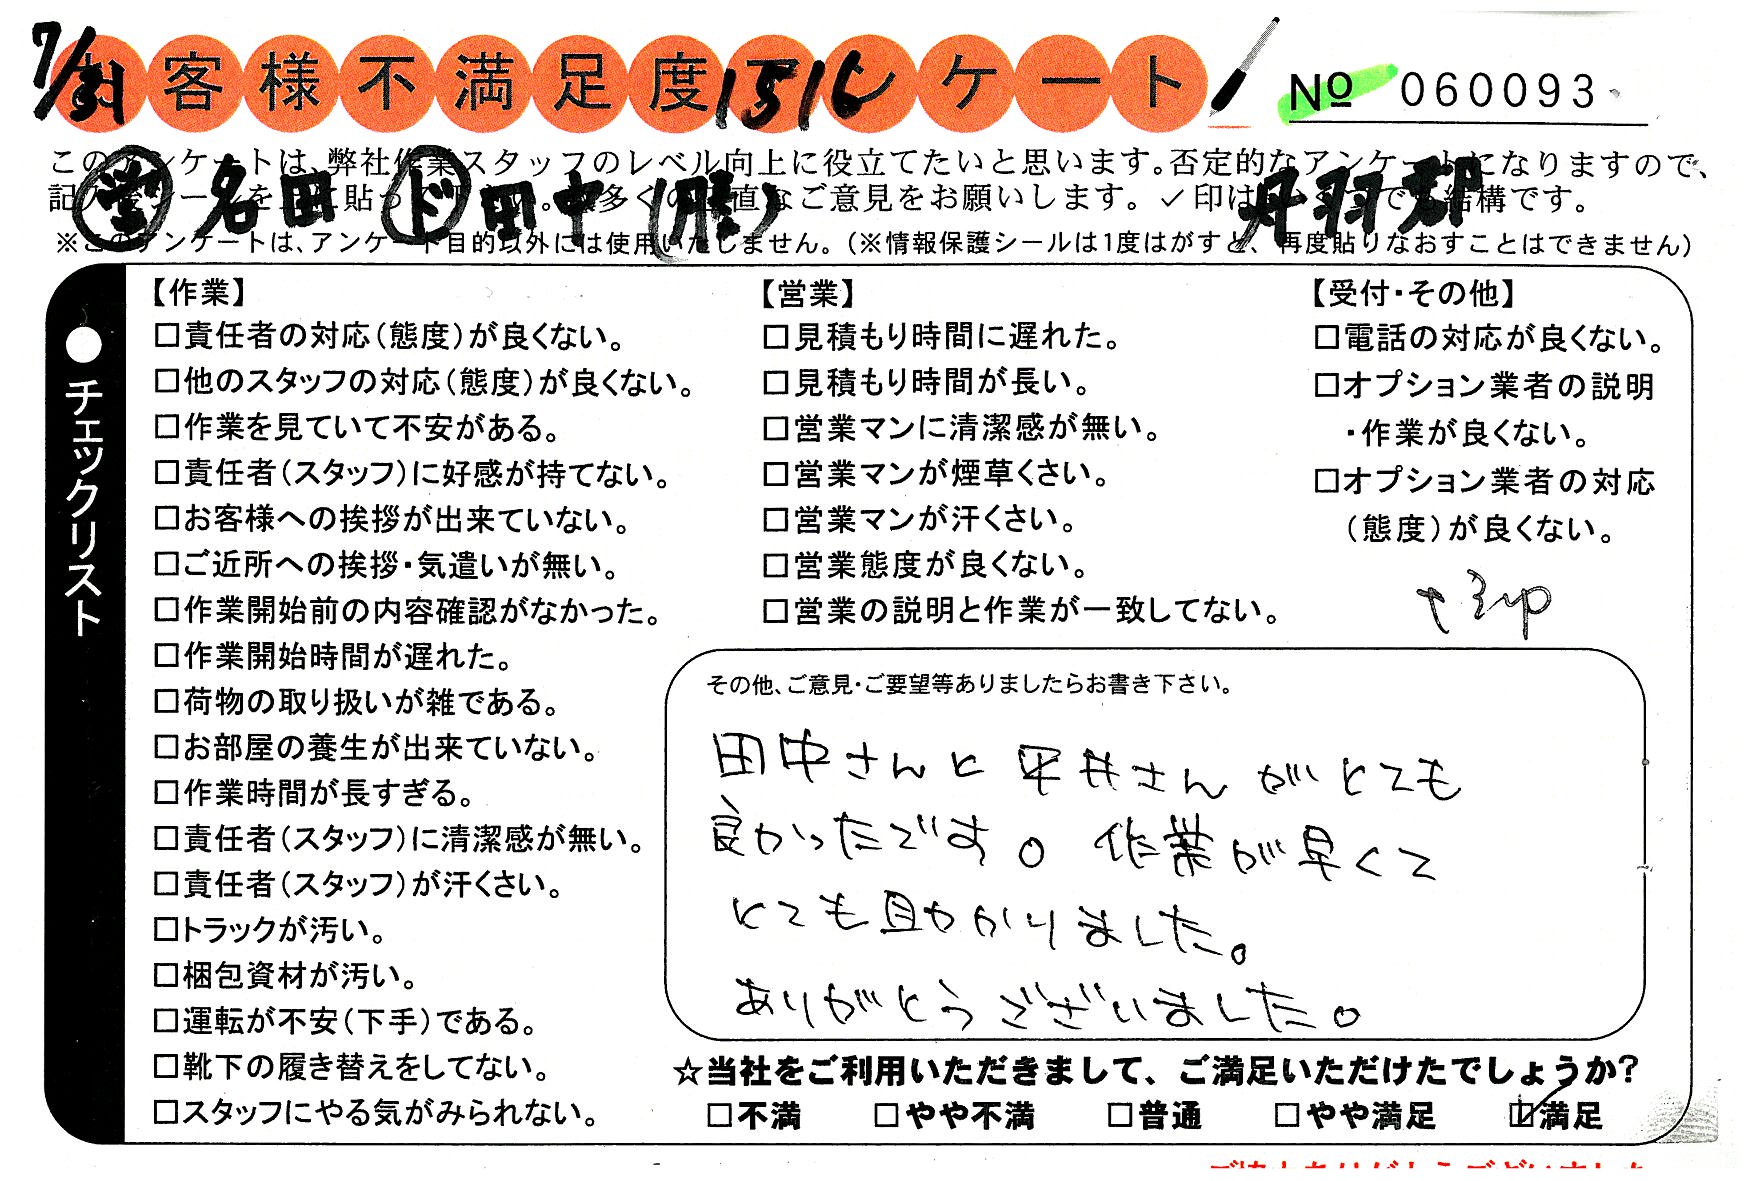 7/31
お客様不満足度アンケート
1516
№ 060093
このアンケートは、弊社作業スタッフのレベル向上に役立てたいと思います。否定的なアンケートになりますので、
営 名田 ド 田中(勝) 丹羽郡
※このアンケートは、アンケート目的以外には使用いたしません。(※情報保護シールは1度はがすと、再度貼りなおすことはできません)
●チェックリスト
【作業】
□責任者の対応(態度)が良くない。
□他のスタッフの対応(態度)が良くない。
□作業を見ていて不安がある。
□責任者(スタッフ)に好感が持てない。
□お客様への挨拶が出来ていない。
□ご近所への挨拶・気遣いが無い。
□作業開始前の内容確認がなかった。
□作業開始時間が遅れた。
□荷物の取り扱いが雑である。
□お部屋の養生が出来ていない。
□作業時間が長すぎる。
□責任者(スタッフ)に清潔感が無い。
□責任者(スタッフ)が汗くさい。
□トラックが汚い。
□梱包資材が汚い。
□運転が不安(下手)である。
□靴下の履き替えをしてない。
□スタッフにやる気がみられない。
【営業】
□見積もり時間に遅れた。
□見積もり時間が長い。
□営業マンに清潔感が無い。
□営業マンが煙草くさい。
□営業マンが汗くさい。
□営業態度が良くない。
□営業の説明と作業が一致してない。
【受付・その他】
□電話の対応が良くない。
□オプション業者の説明
・作業が良くない。
□オプション業者の対応
(態度)が良くない。
その他、ご意見・ご要望等ありましたらお書き下さい。
田中さんと平井さんがとても
良かったです。作業が早くて
とても助かりました。
ありがとうございました。
☆当社をご利用いただきまして、ご満足いただけたでしょうか?
□不満 □やや不満 □普通 □やや満足 ☑満足